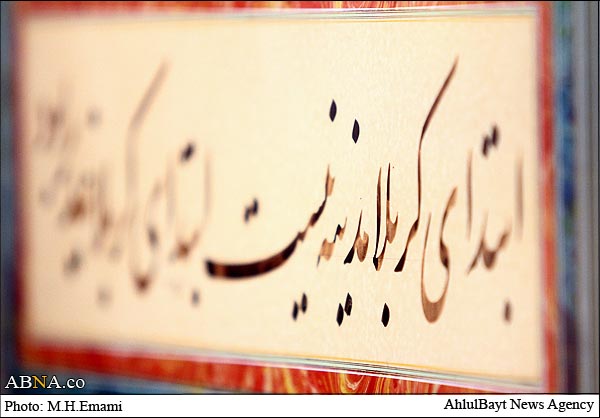 ابتدای کربلا مدینه نیست ابتدای کربلا
ABNA.co
Photo: M.H.Emami
AhlulBayt News Agency